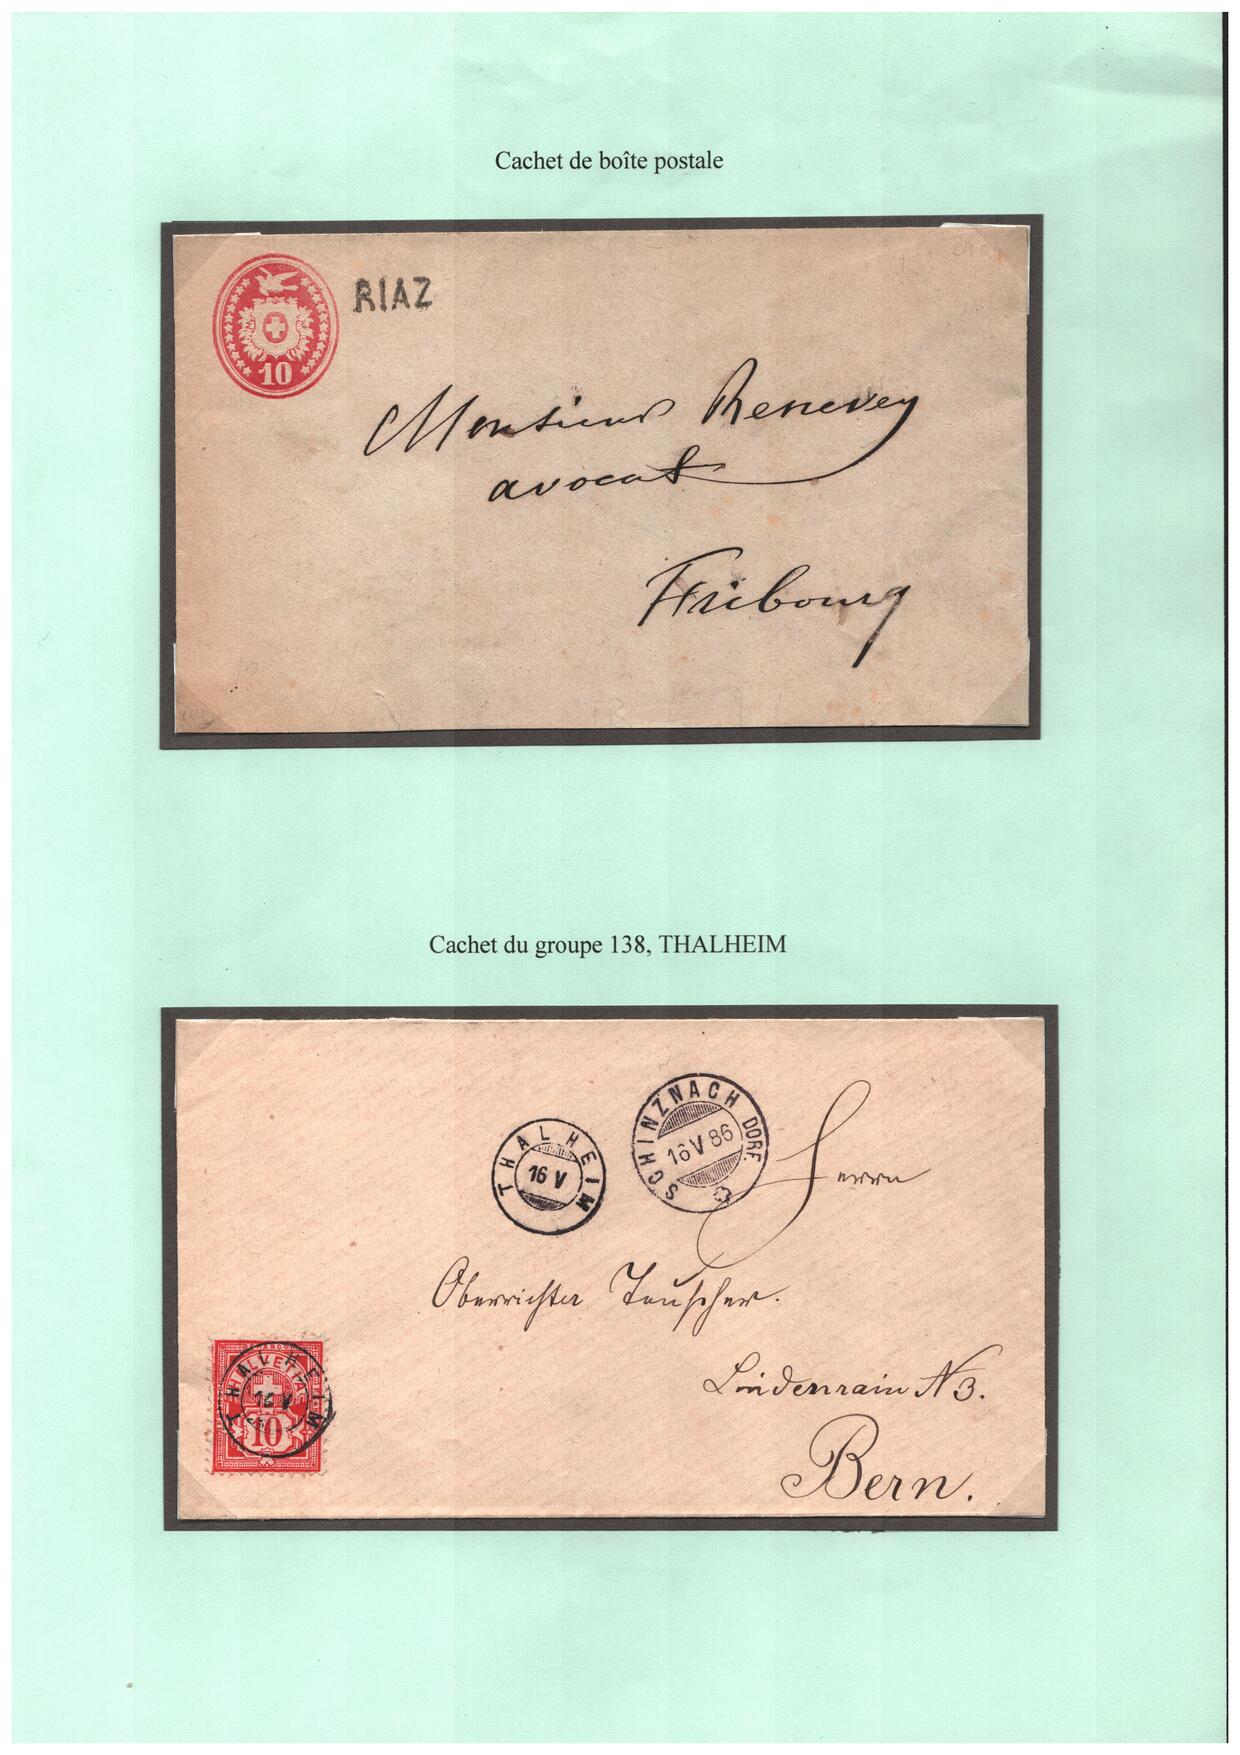 Cachet de boîte postale
10
RIAZ
Monsieur Renevey
avocat
Fribourg
Cachet du groupe 138, THALHEIM
SCHINZNACH DORF.
16 V 86
THALHEIM
16 V
Herrn
Oberrichter Teuscher.
Lindenrain N 3.
Bern.
FRANCO
HELVETIA
10
THALHEIM
16 V